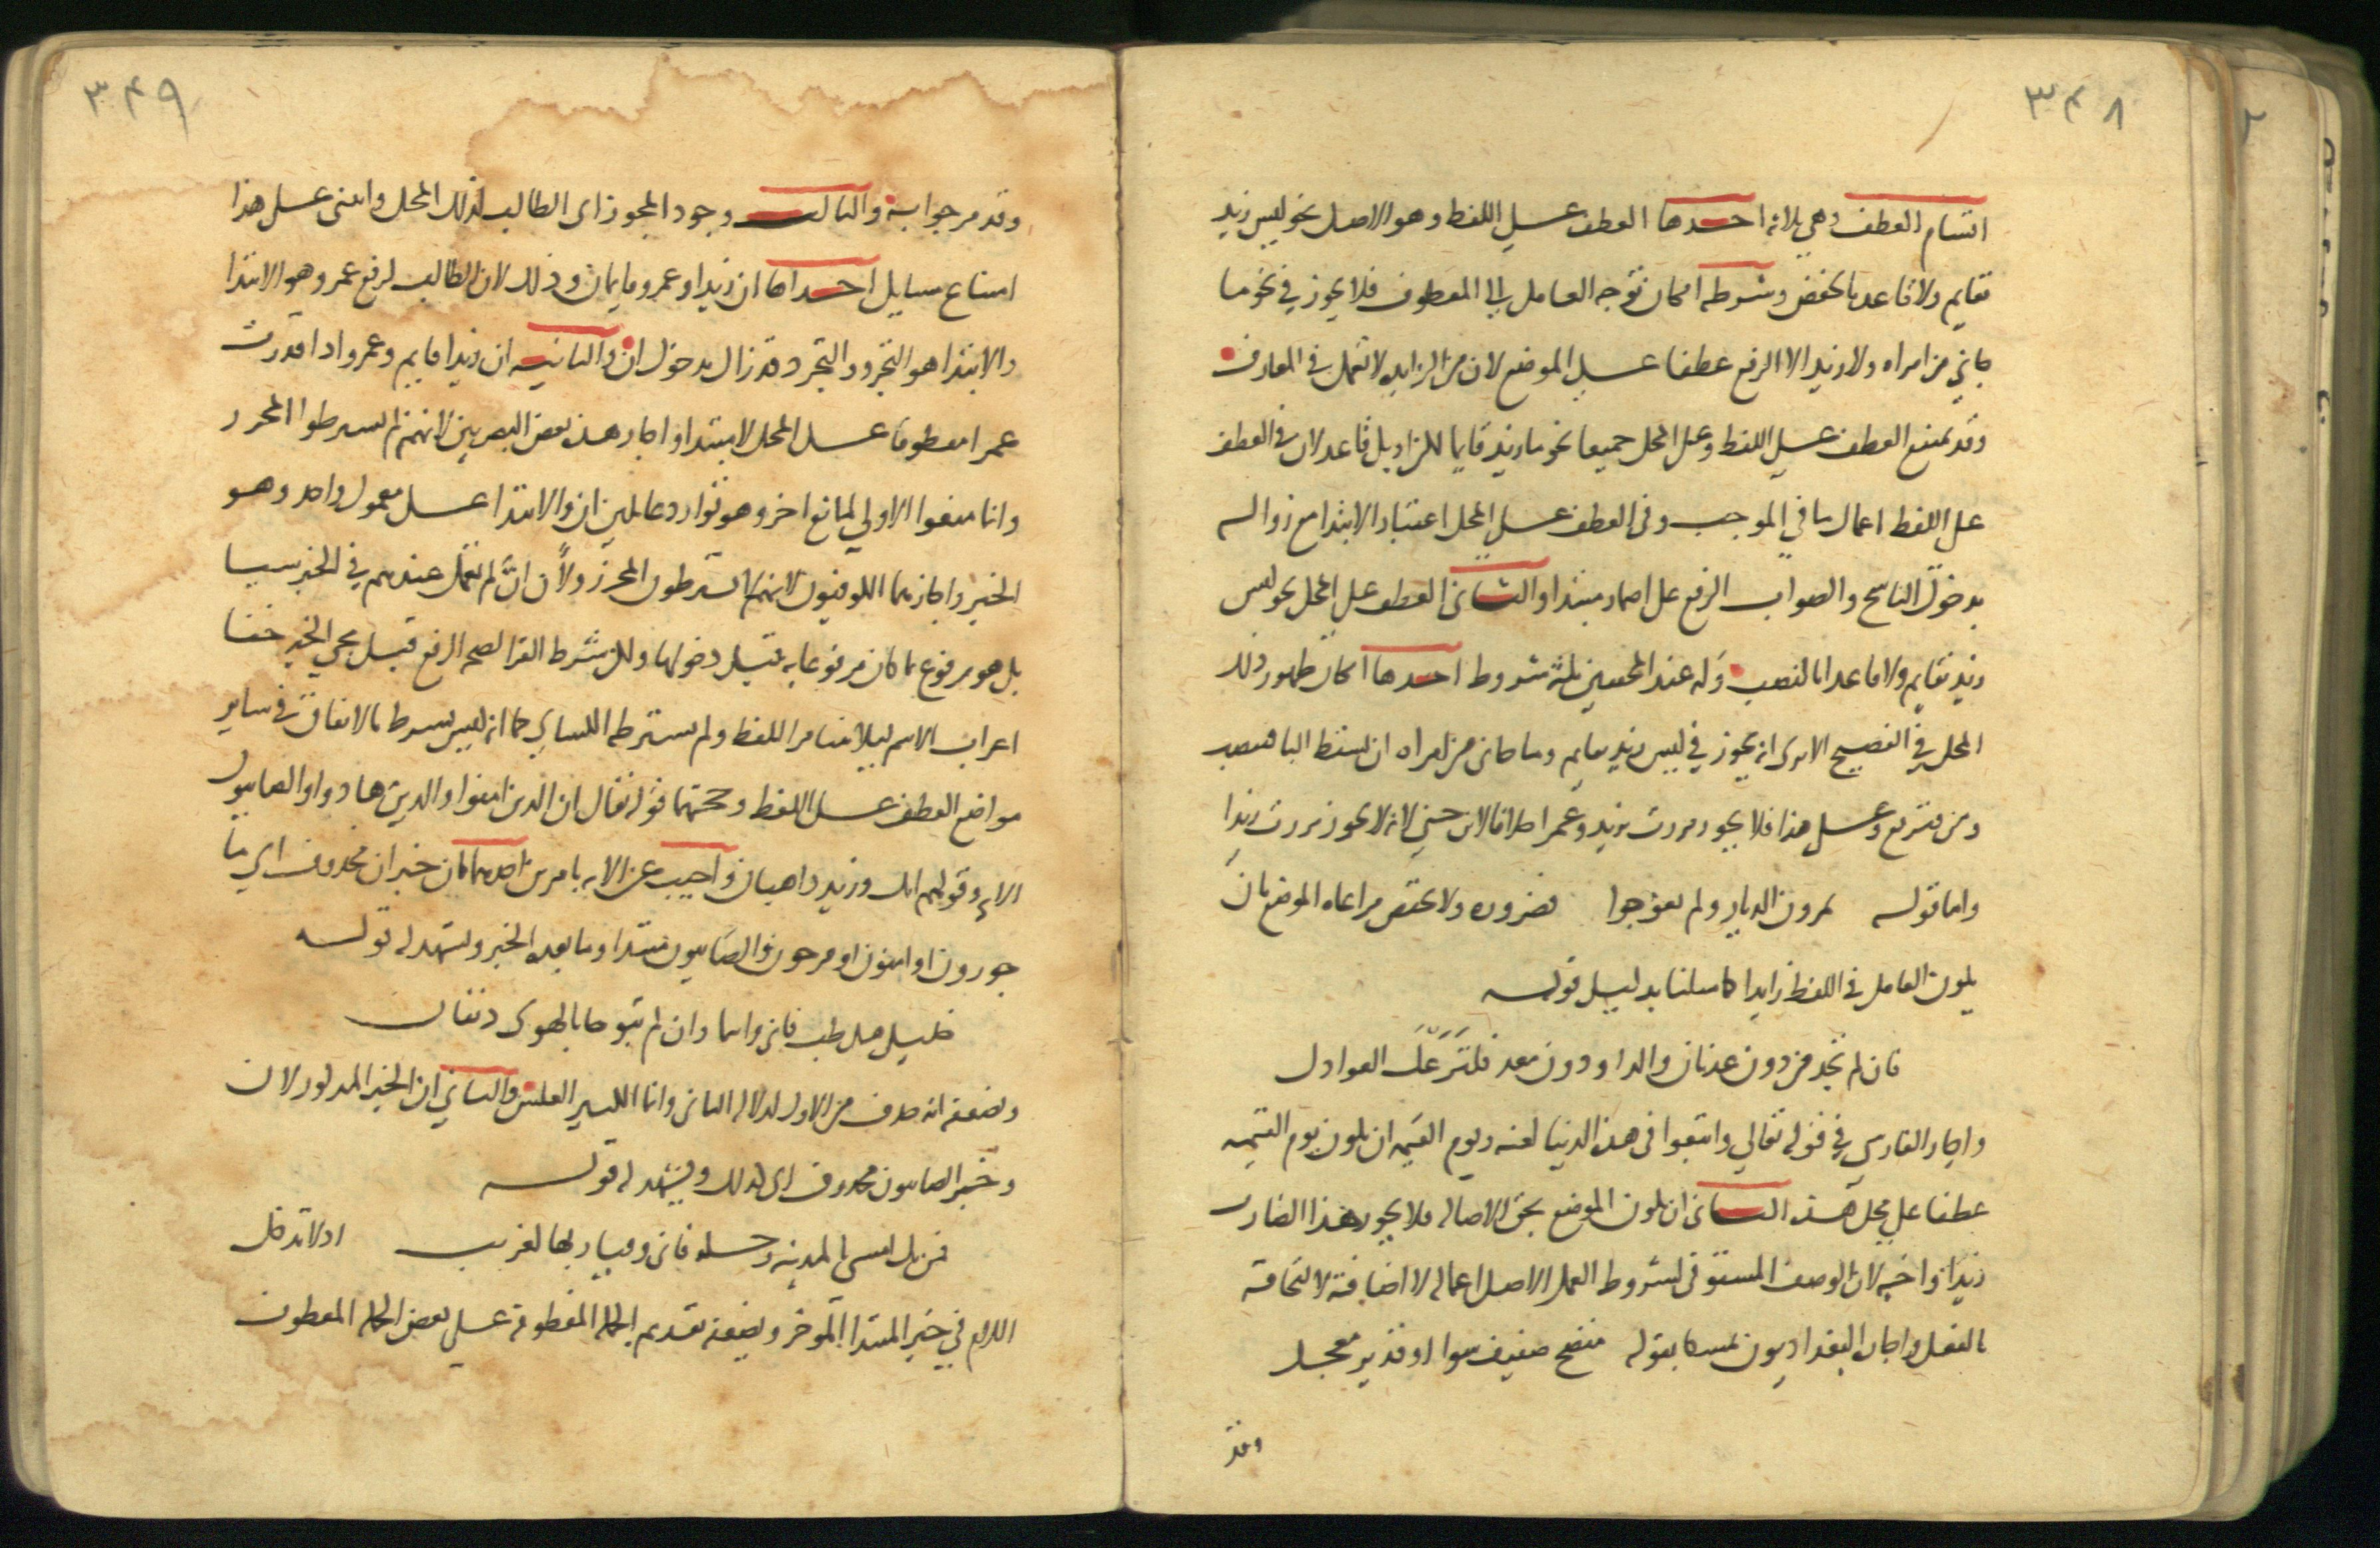 ٣٤٨
اقسام العطف وهي ثلاثة احدها العطف على اللفظ وهو الاصل نحو ليس زيد
بقايم ولا قاعد بالخفض وشرطه امكان توجه العامل الى المعطوف فلا يجوز في نحو ما
جاني من امراه ولا زيد الا الرفع عطفا على الموضع لان من الزايده لا تعمل في المعارف
وقد يمتنع العطف على اللفظ وعلى المحل جميعا نحو ما زيد قايما لكن او بل قاعد لان في العطف
على اللفظ اعمال ما في الموجب وفي العطف على المحل اعتبار الابتدا مع زواله
بدخول الناسخ والصواب الرفع على اضمار مبتدا والثاني العطف على المحل نحو ليس
زيد بقايم ولا قاعدا بالنصب وله عند المحققين ثلثة شروط احدها امكان ظهور ذلك
المحل في الفصيح الا ترى انه يجوز في ليس زيد بقايم وما جاني من امراه ان تسقط البا فتنصب
ومن فترفع وعلى هذا فلا يجوز مررت بزيد وعمرا خلافا لابن جني لانه لا يجوز مررت زيدا
واما قوله تمرون الديار ولم تعوجوا فضروره ولا تختص مراعاه الموضع بان
يكون العامل في اللفظ زايدا كما مثلنا بدليل قوله
فان لم تجد من دون عدنان والدا ودون معد فلتزعك العواذل
واجاز الفارسي في قوله تعالي واتبعوا في هذه الدنيا لعنه ويوم القيمه ان يكون يوم القيمه
عطفا على محل هذه الثاني ان يكون الموضع بحق الاصاله فلا يجوز هذا الضارب
زيدا واخيه لان الوصف المستوفى لشروط العمل الاصل اعماله لا اضافته لالتحاقه
بالفعل واجازه البغداديون تمسكا بقوله منضج صفيف شواء او قدير معجل
وقد
٣٤٩
وقد مر جوابه والثالث وجود المحرز اي الطالب لذلك المحل وابتني على هذا
امتناع مسايل احداها ان زيدا وعمرو قايمان وذلك لان الطالب لرفع عمرو هو الابتدا
والابتدا هو التجرد والتجرد قد زال بدخول ان والثانيه ان زيدا قايم وعمرو اذا قدرت
عمرا معطوفا على المحل لا مبتدا واجاز هذه بعض البصريين لانهم لم يشترطوا المحرز
وانما منعوا الاولي لمانع اخر وهو توارد عاملين ان والابتدا على معمول واحد وهو
الخبر واجازهما الكوفيون لانهم لا يشترطون المحرز ولان ان لم تعمل عندهم في الخبر شيا
بل هو مرفوع بما كان مرفوعا به قبل دخولها ولكن شرط الفرا لصحه الرفع قبل مجي الخبر خفا
اعراب الاسم ليلا يتنافر اللفظ ولم يشترطه الكسائي كما انه ليس بشرط بالاتفاق في ساير
مواضع العطف على اللفظ وحجتهما قوله تعالي ان الذين امنوا والذين هادوا والصابيون
الايه وقولهم انك وزيد ذاهبان واجيب عن الايه بامرين احدهما كان خبر ان محذوف اي ما
جورون او امنون او فرحون والصابيون مبتدا وما بعده الخبر ويشهد له قوله
خليلي هل طب فاني وانتما وان لم تبوحا بالهوى دنفان
ويضعفه انه حذف من الاول لدلاله الثاني وانما الكثير العكس والثاني ان الخبر المذكور لان
وخبر الصابيون محذوف اي كذلك ويشهد له قوله
فمن يك امسى بالمدينه رحله فاني وقيار بها لغريب اذ لا تدخل
اللام في خبر المبتدا المؤخر ويضعفه تقديم الجمله المعطوفه على بعض الجمله المعطوف